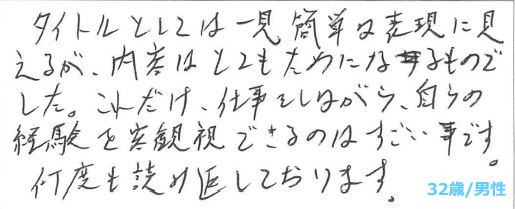 タイトルとしては一見簡単な表現に見
えるが、内容はとてもためになるもので
した。これだけ、仕事をしながら、自らの
経験を実観視できるのはすごい事です。
何度も読み返しております。
32歳/男性